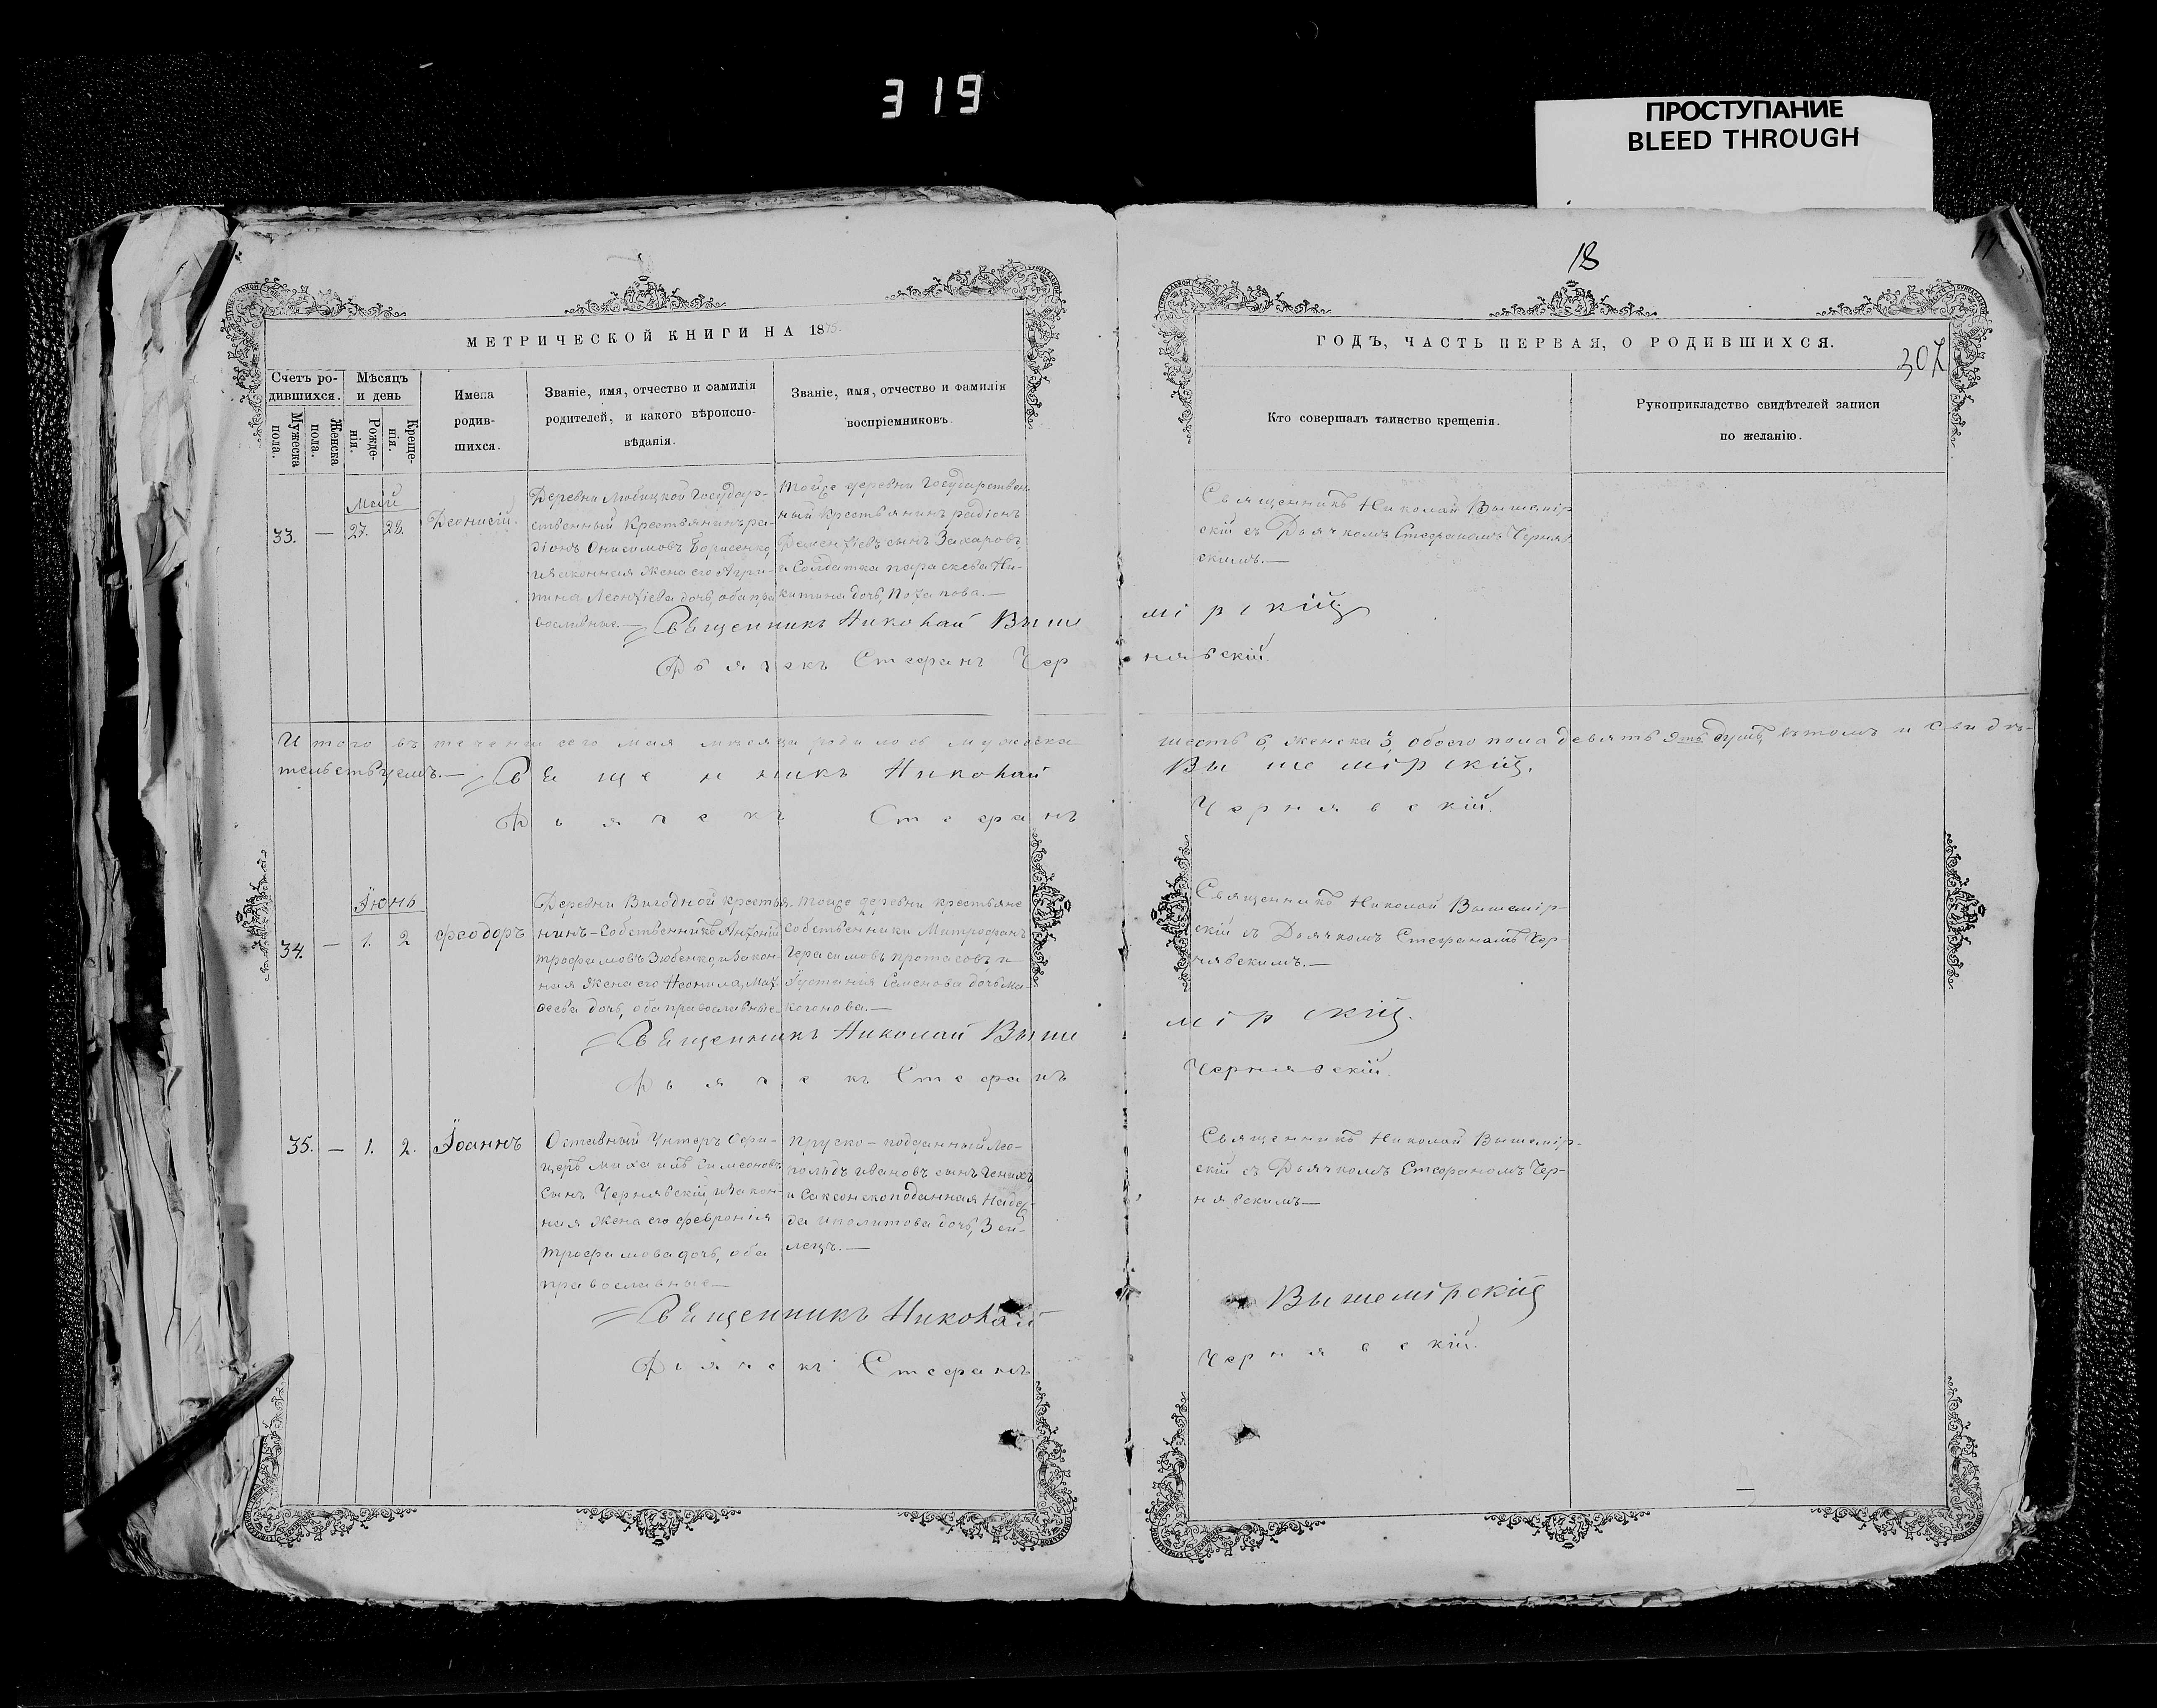 319
ПРОСТУПАНИЕ
BLEED THROUGH
18
307
МЕТРИЧЕСКОЙ КНИГИ НА 1875.
Счетъ ро-
дившихся.
Мужеска
пола.
Женска
пола.
Мѣсяцъ
и день
Рожде-
нія.
Креще-
нія.
Имена
родив-
шихся.
Званіе, имя, отчество и фамилія
родителей, и какого вѣроиспо-
вѣданія.
Званіе, имя, отчество и фамилія
воспріемниковъ.
ГОДЪ, ЧАСТЬ ПЕРВАЯ, О РОДИВШИХСЯ.
Кто совершалъ таинство крещенія.
Рукоприкладство свидѣтелей записи
по желанію.
Май
33. — 27. 28. Деонисій.
Деревни Любицкой Государ-
ственный Крестьянинъ ра-
діонъ Онисимовъ Борисенко,
и законная жена его Агри-
пина Леонтіева дочь, оба пра
вославные.—
Тойже деревни Государствен
ный Крестьянинъ радіонъ
Дементіевъ сынъ Захаровъ,
и Солдатка параскева Ни-
китина дочь, Потапова.—
Священникъ Николай Вышемір
скій съ Дьячкомъ Стефаномъ Черняв
скимъ.—
Священникъ Николай Выше мірскій
Дьячекъ Стефанъ Чер нявскій.
Итого въ теченіи сего мая мѣсяца родилось мужеска шесть 6, женска 3, обоего пола девять 9ть душъ, въ томъ и свидѣ-
тельствуемъ.— Священникъ Николай Вышемірскій.
Дьячекъ Стефанъ Чернявскій.
Іюнь
34. — 1. 2 Феодоръ
Деревни Вигодной крестья
нинъ-Собственникъ Антоній
трофимовъ Зюбенко, и закон-
ная жена его Неонила, Мат-
веева дочь, оба православные.
тойже деревни крестьяне
собственники Митрофанъ
Герасимовъ протасовъ и
Іустинія Семенова дочь Ма-
когонова.—
Священникъ Николай Вышемір-
скій съ Дьячкомъ Стефаномъ Чер
нявскимъ.—
Священникъ Николай Выше мірскій.
Дьячекъ Стефанъ Чернявскій.
35. — 1. 2. Іоаннъ
Оставный Унтеръ Офи-
церъ Михаилъ Симеоновъ
сынъ Чернявскій, и закон-
ная жена его феврония
трофимова дочь, оба
православные—
Пруско-подданный Лео-
польдъ Ивановъ сынъ Гених
и Саксонскоподанная Надеж
да Иполитова дочь, Зей-
лецъ.—
Священникъ Николай Вышемір-
скій съ Дьячкомъ Стефаномъ Чер-
нявскимъ—
Священникъ Николай Вышемірскій
Дьячекъ Стефанъ Чернявскій.